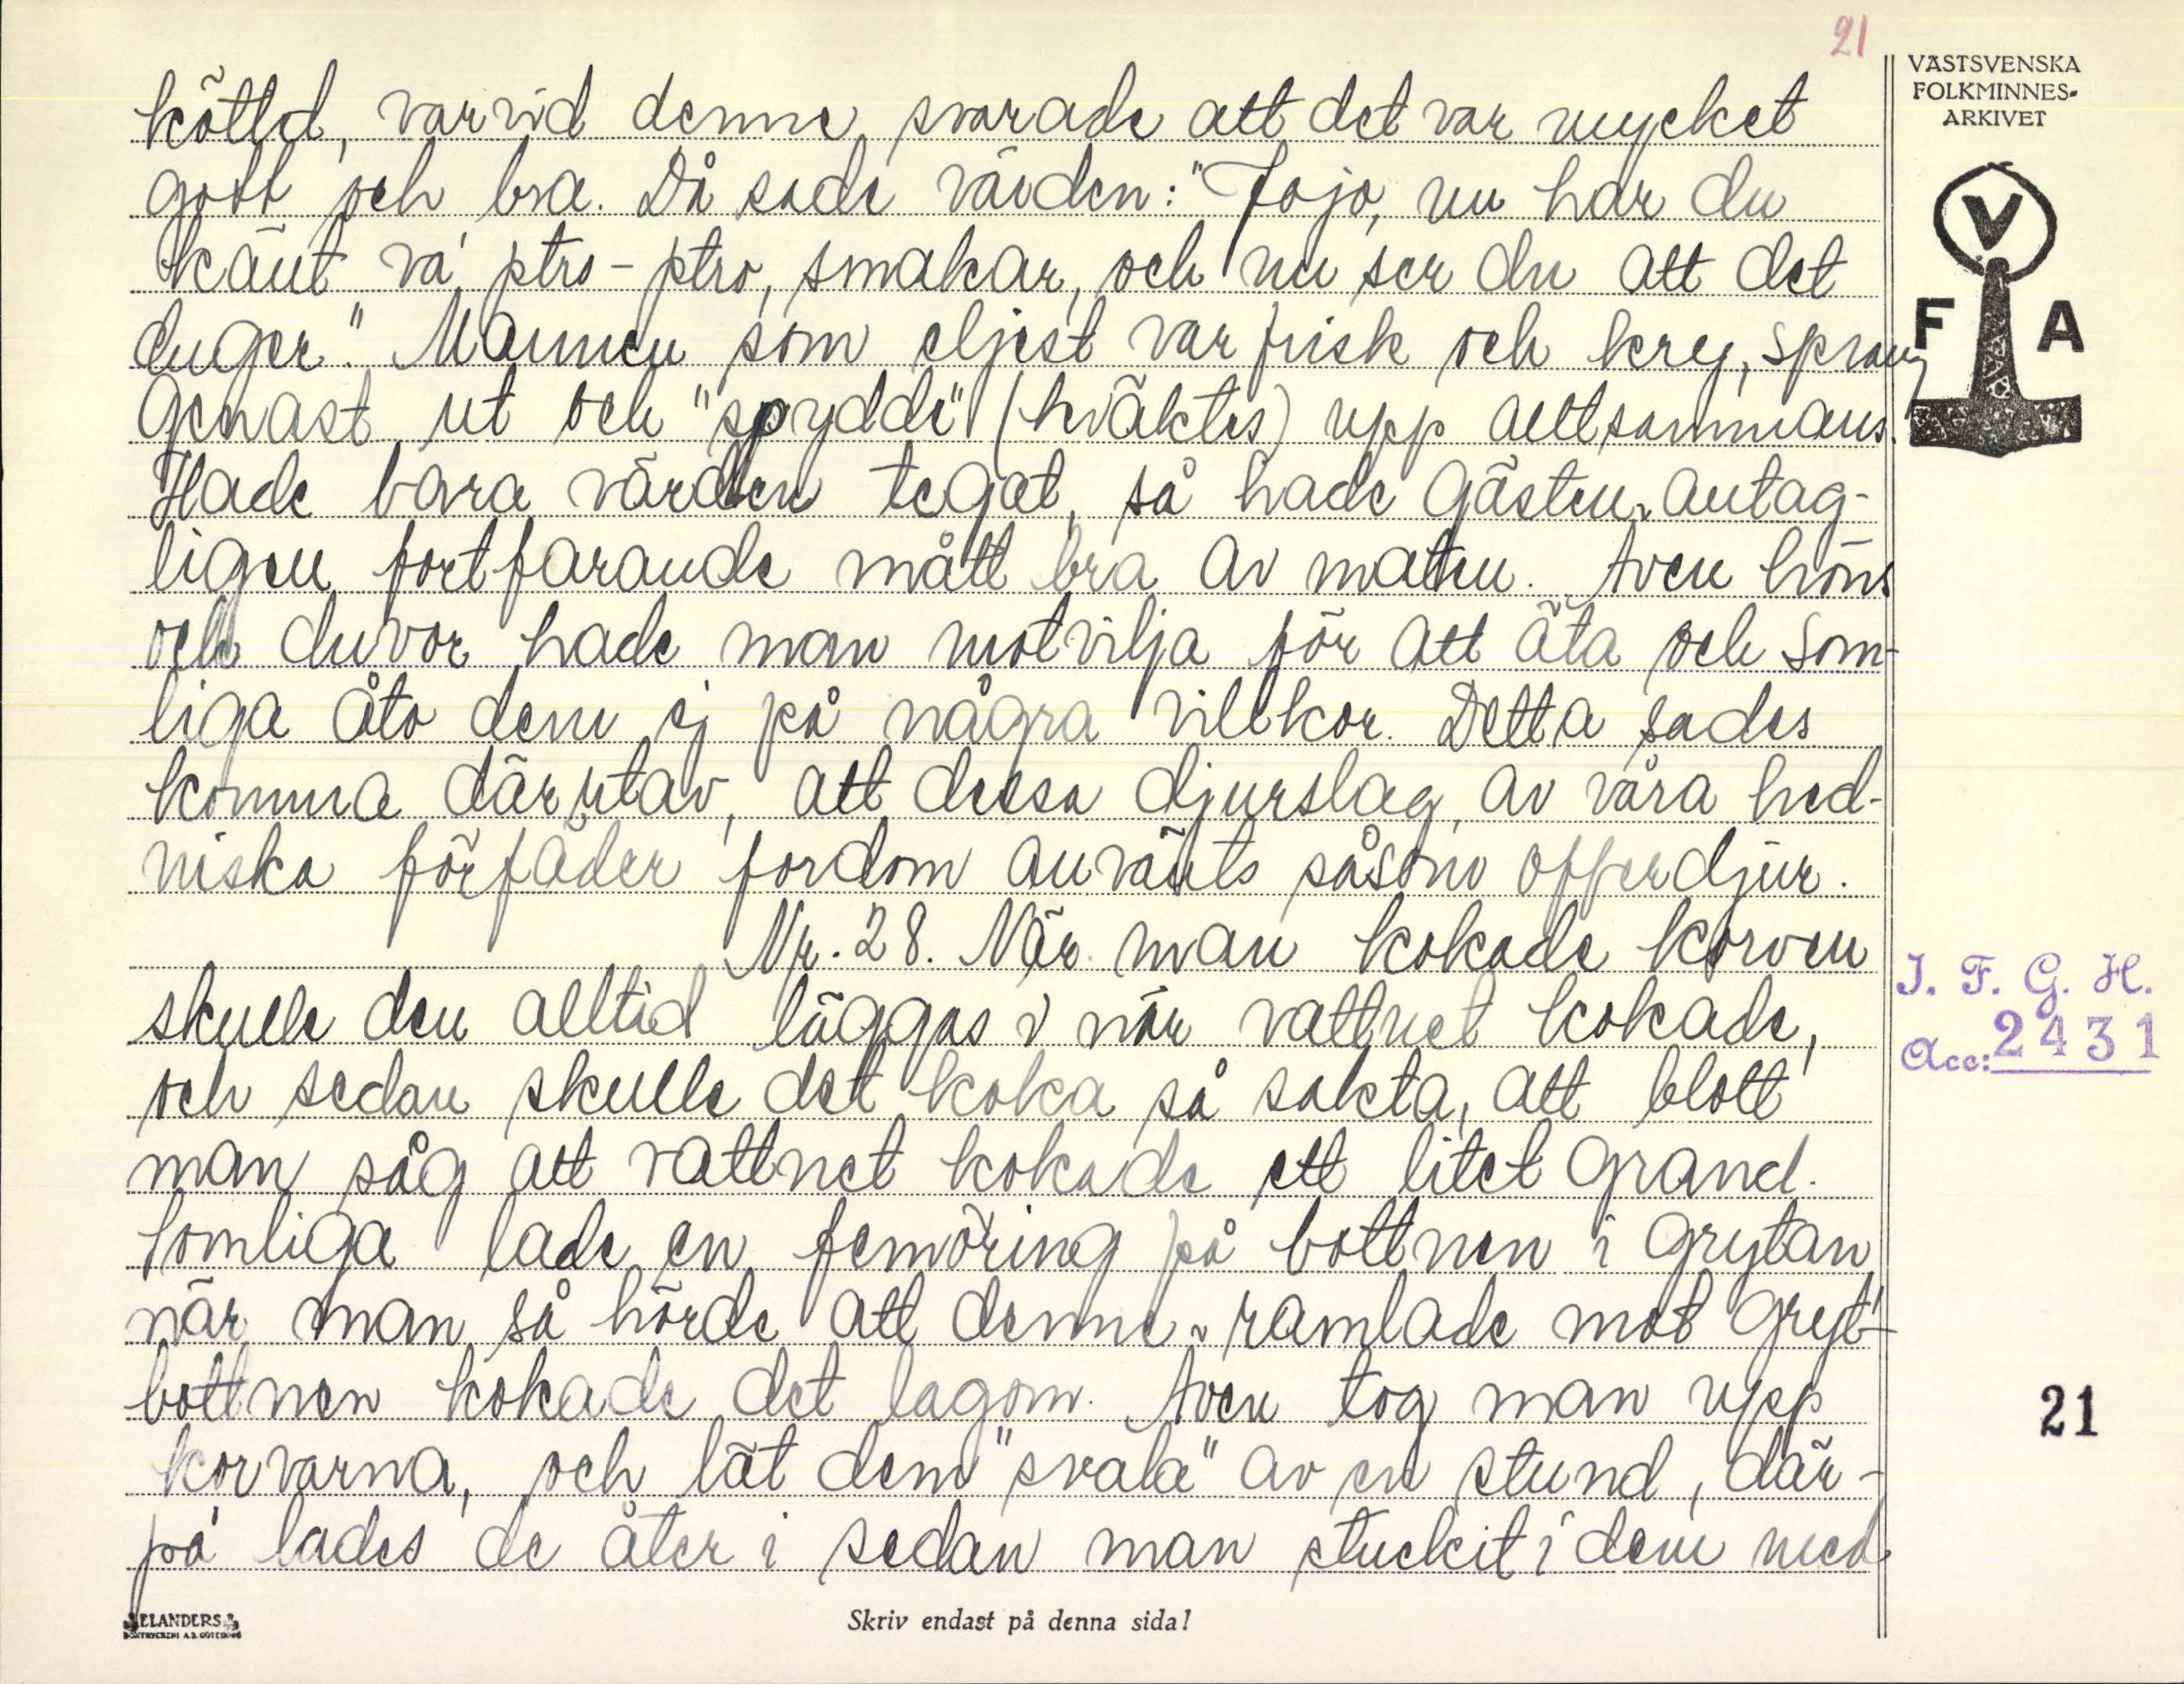 21
VÄSTSVENSKA
FOLKMINNES-
ARKIVET
V
F A
köttet, varvid denne, svarade att det var mycket
gott och bra. Då sade värden: "Jojo, nu har du
känt va' ptro-ptro, smakar, och nu ser du att det
duger." Mannen som eljest var frisk och kry, sprang
genast, ut och "spyddi" (kväktes) upp alltsammans.
Hade bara värden tegat, så hade gästen antag-
ligen fortfarande mått bra av maten. Även höns
och duvor hade man motvilja för att äta och som-
liga åto dem ej på några villkor. Detta sades
komma därutav, att dessa djurslag, av våra hed-
niska förfäder fordom använts såsom offerdjur.
Nr. 28. När man kokade korven
skulle den alltid läggas i när vattnet kokade,
och sedan skulle det koka så sakta, att blott
man såg att vattnet kokade ett litet grand.
Somliga lade en femöring på bottnen i grytan,
när man så hörde att denne ramlade mot gryt-
bottnen kokade det lagom. Även tog man upp
korvarna, och lät dem "svala" av en stund, där-
på lades de åter i sedan man stuckit i dem med
I. F. G. H.
Acc: 2431
21
ELANDERS
BOKTRYCKERI A.B. GÖTEBORG
Skriv endast på denna sida!